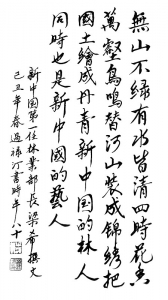 無山不綠有水皆清四時花香
萬壑鳥鳴替河山裝成錦繡把
國土繪成丹青新中國的林人
同時也是新中國的藝人
新中國第一任林業部長梁希撰文
己丑年春過禄汀書時年八十